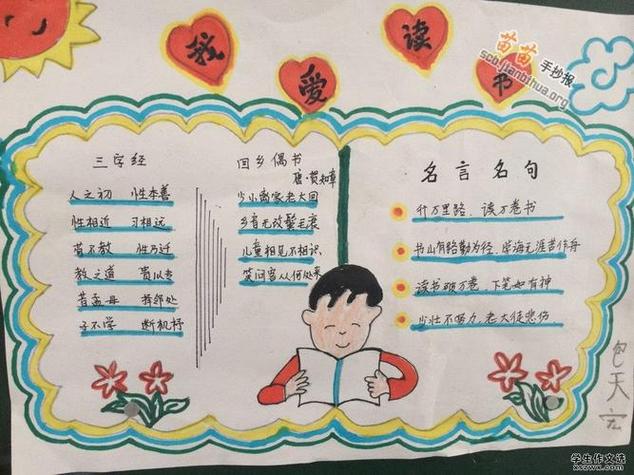 我爱读书
苗苗手抄报
scb.jianbihua.org
三字经
人之初 性本善
性相近 习相远
苟不教 性乃迁
教之道 贵以专
昔孟母 择邻处
子不学 断机杼
回乡偶书
唐·贺知章
少小离家老大回
乡音无改鬓毛衰
儿童相见不相识
笑问客从何处来
名言名句
行万里路、读万卷书
书山有路勤为径,学海无涯苦作舟
读书破万卷、下笔如有神
少壮不努力,老大徒悲伤
包天
学生作文选
xszwx.com